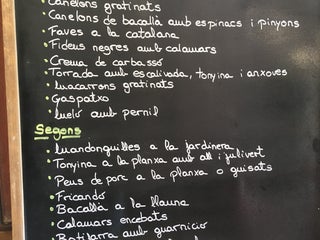 Canelons gratinats
Canelons de bacallà amb espinacs i pinyons
Faves a la catalana
Fideus negres amb calamars
Crema de carbassó
Torrada amb escalivada, tonyina i anxoves
Macarrons gratinats
Gaspatxo
Meló amb pernil
Segons
Mandonguilles a la jardinera
Tonyina a la planxa amb all i julivert
Peus de porc a la planxa o guisats
Fricandó
Bacallà a la llauna
Calamars encebats
Botifarra amb guarnició